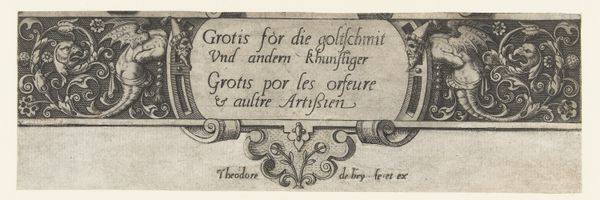 Grotis fór die goltschmit
Vnd andern khunstiger
Grotis por les orfeure
& aultre Artißien
Theodore de bry · fe · et ex